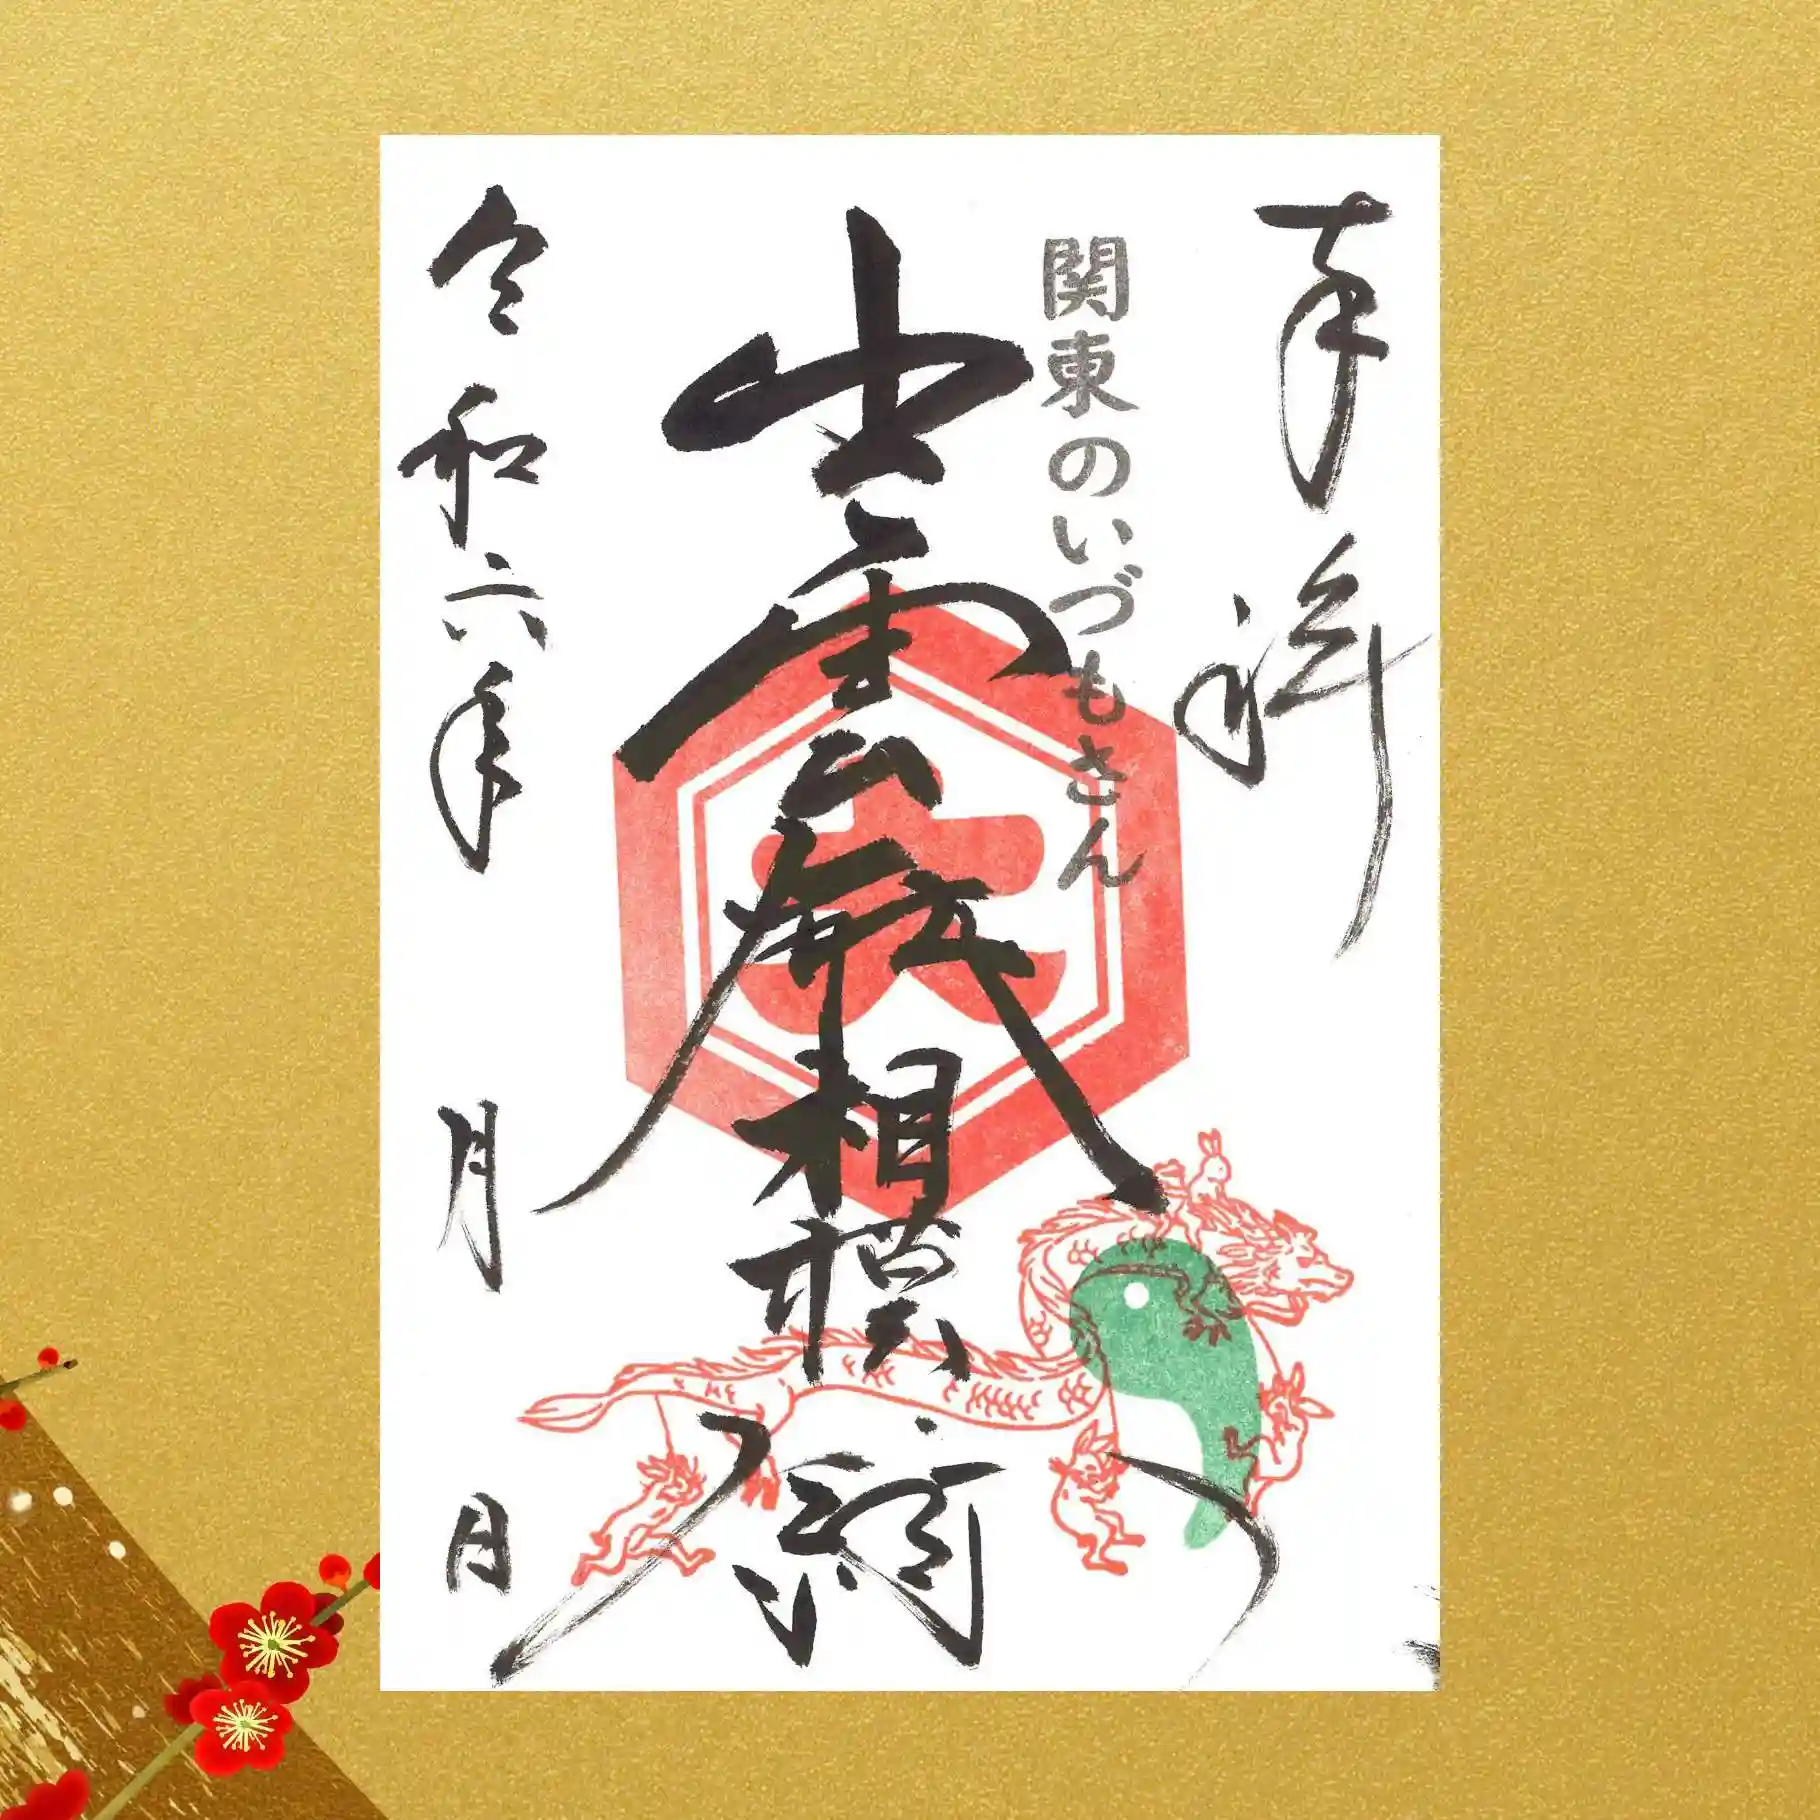 奉拝
関東のいづもさん
出雲大社相模分祠
令和六年 月 日
大